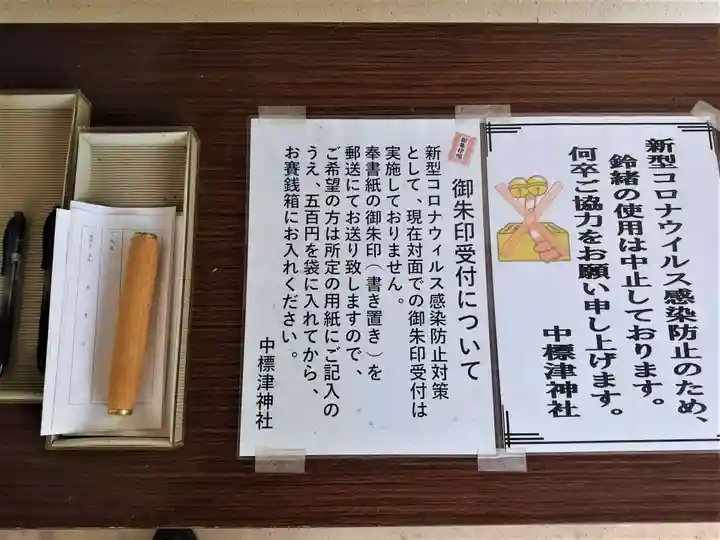 新型コロナウイルス感染防止のため、
鈴緒の使用は中止しております。
何卒ご協力をお願い申し上げます。
中標津神社
御朱印受付について
新型コロナウィルス感染防止対策
として、現在対面での御朱印受付は
実施しておりません。
奉書紙の御朱印(書き置き)を
郵送にてお送り致しますので、
ご希望の方は所定の用紙にご記入の
うえ、五百円を袋に入れてから、
お賽銭箱にお入れください。
中標津神社